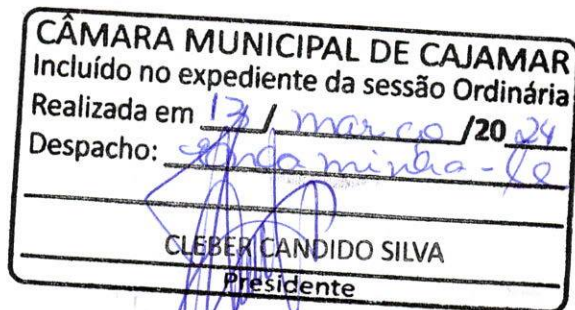 CÂMARA MUNICIPAL DE CAJAMAR
Incluído no expediente da sessão Ordinária
Realizada em 13 / março /20 24
Despacho: Encaminha-se
CLEBER CANDIDO SILVA
Presidente